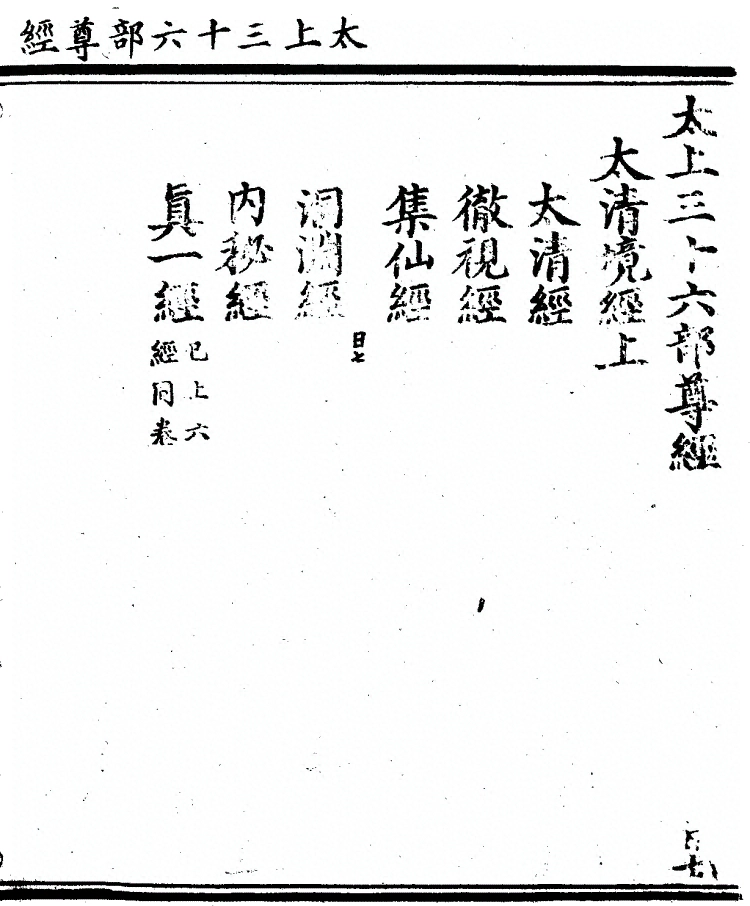 太上三十六部尊經
太上三十六部尊經
日七
太清境經上
太清經
徹視經
集仙經
日七
洞淵經
内秘經
眞一經
已上六
經同卷